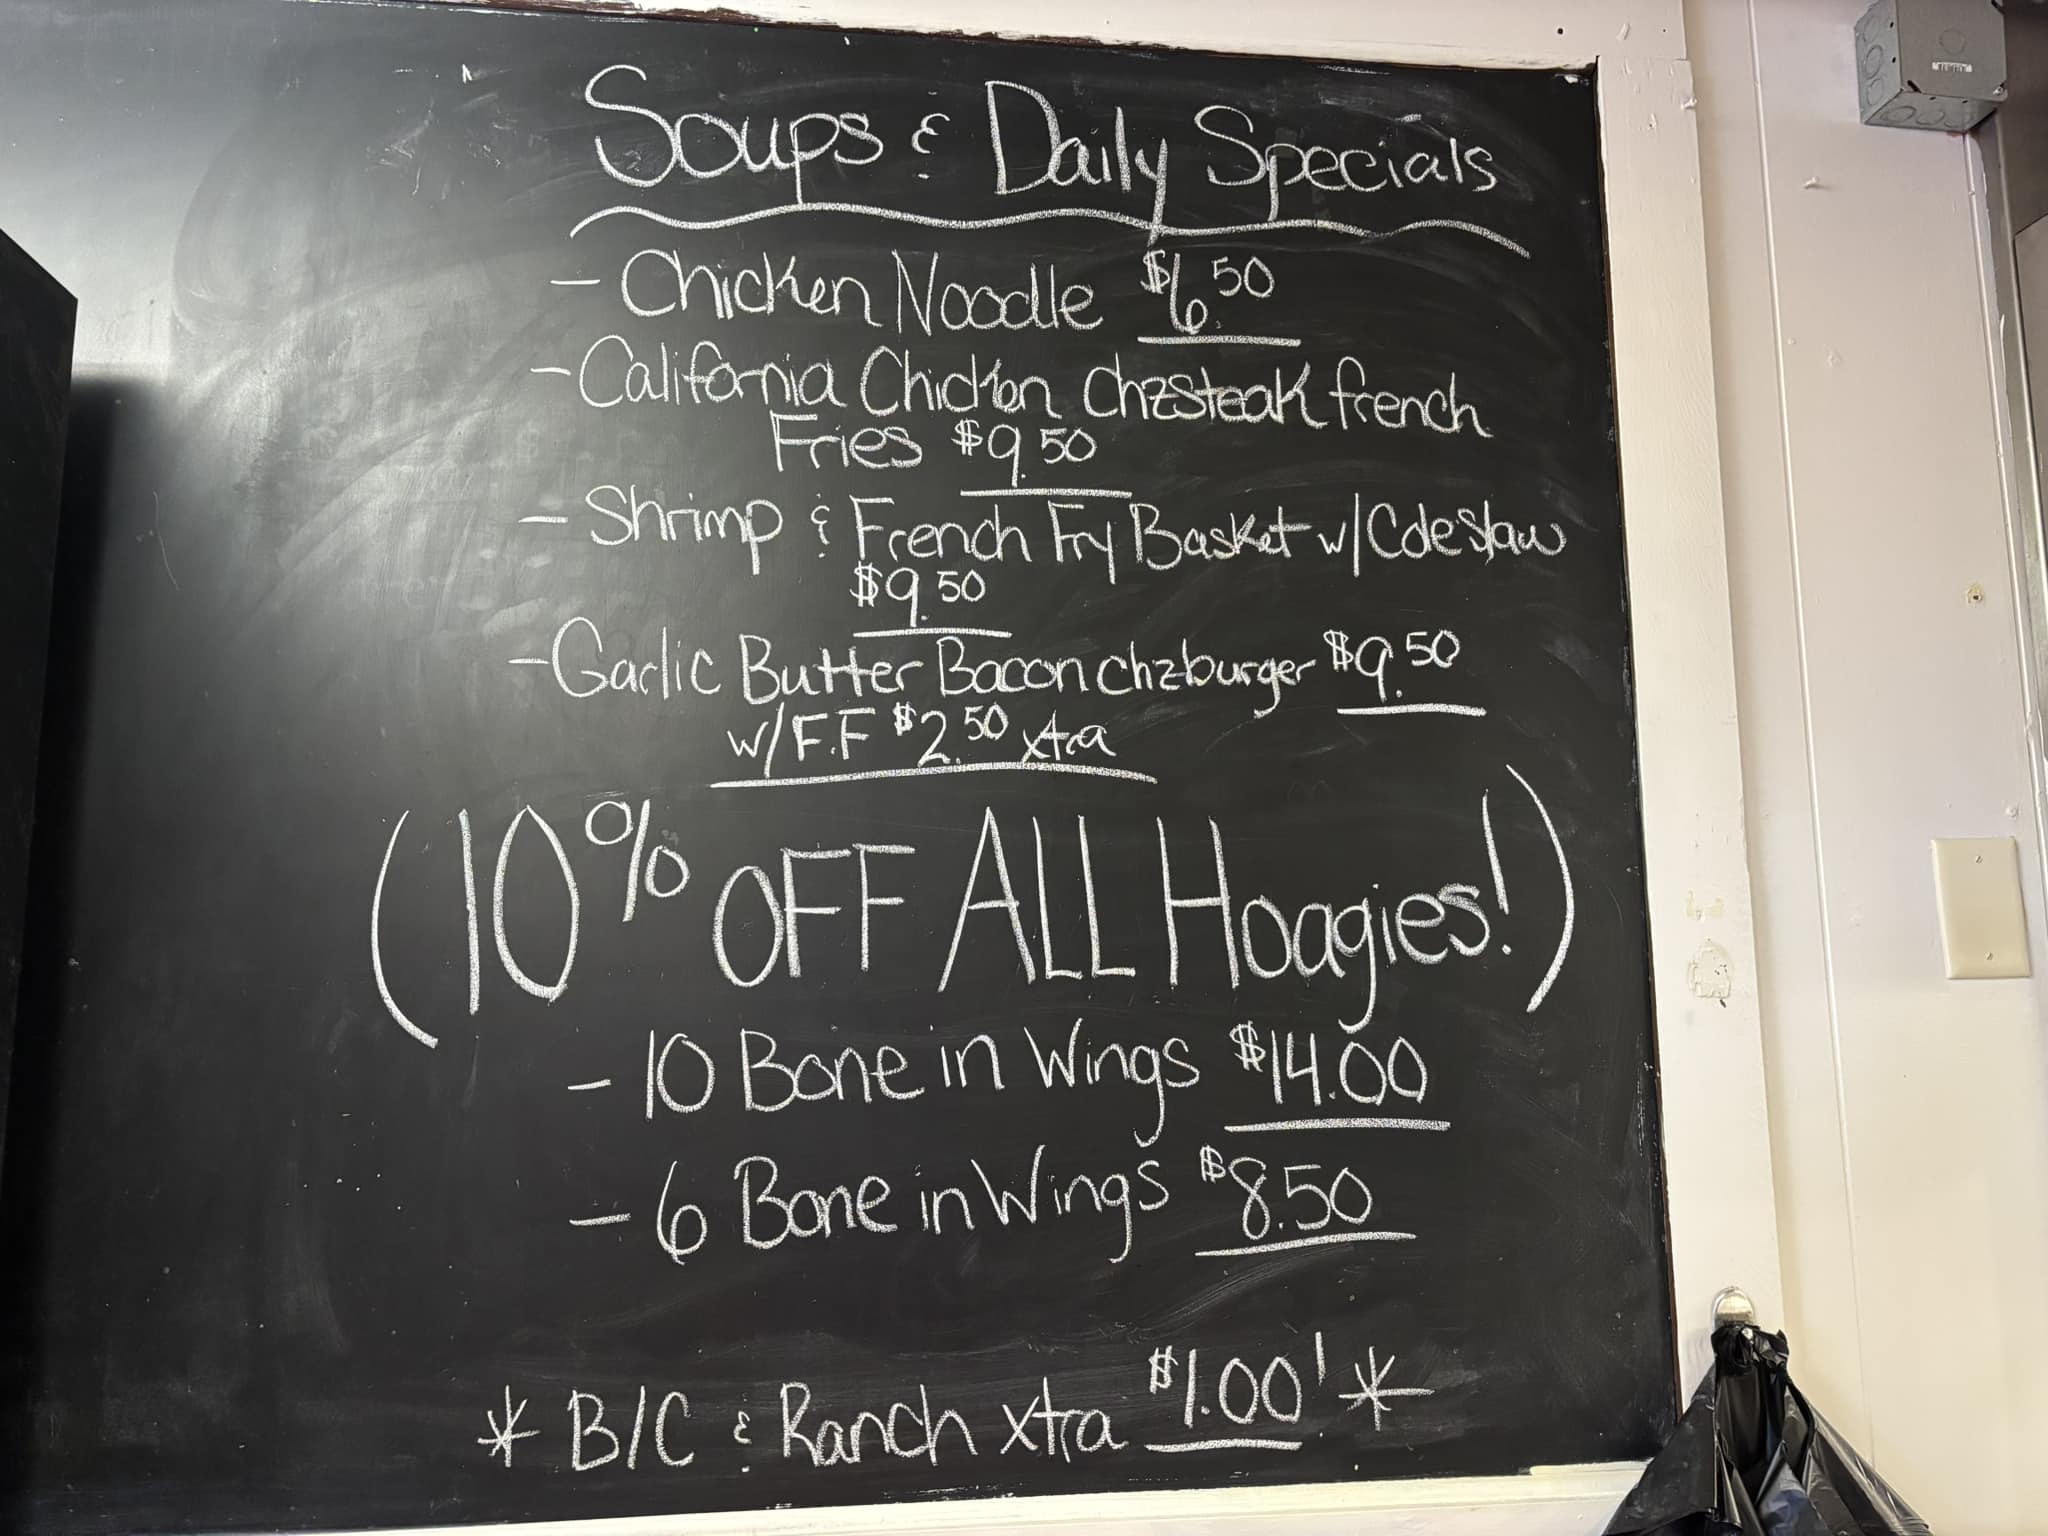 Soups & Daily Specials
- Chicken Noodle $6.50
- California Chicken Chzsteak french
Fries $9.50
- Shrimp & French Fry Basket w/Coleslaw
$9.50
- Garlic Butter Bacon chzburger $9.50
w/F.F $2.50 xtra
(10% OFF ALL Hoagies!)
- 10 Bone in Wings $14.00
- 6 Bone in Wings $8.50
* B/C & Ranch xtra $1.00! *